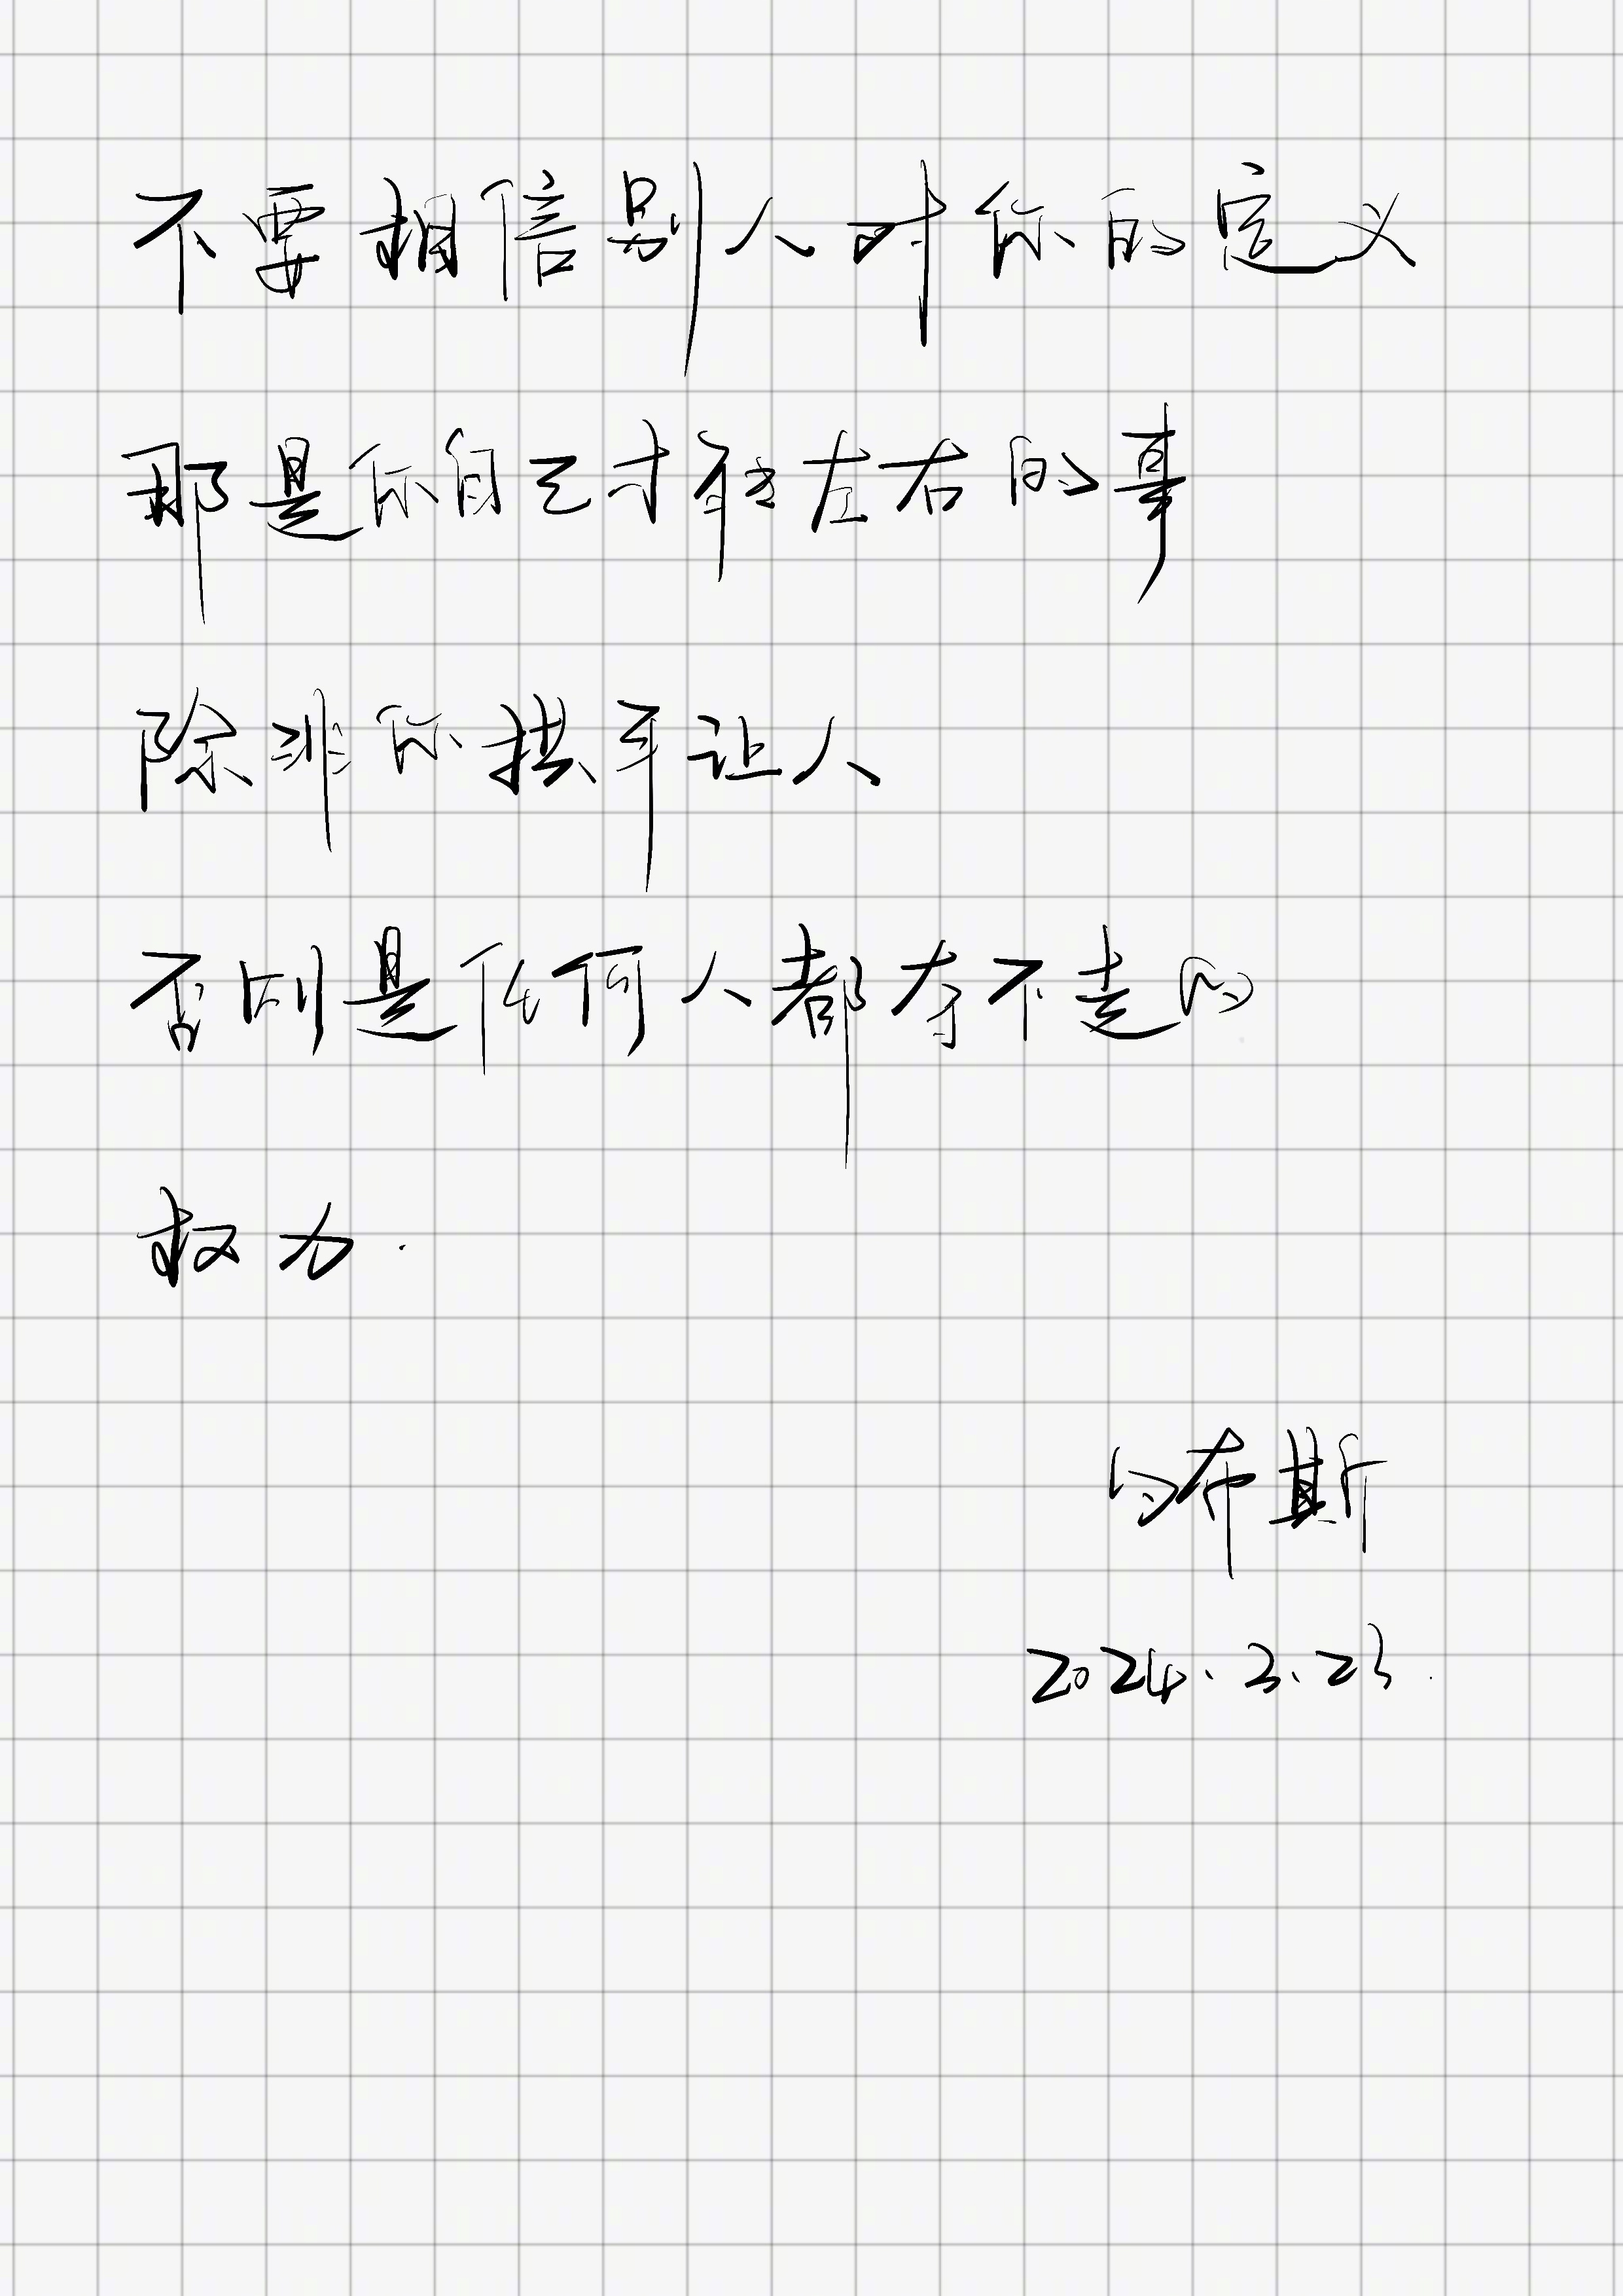 不要相信别人对你的定义
那是你自己才能左右的事
除非你拱手让人
否则是任何人都夺不走的
权力.
布斯
2024.3.23.